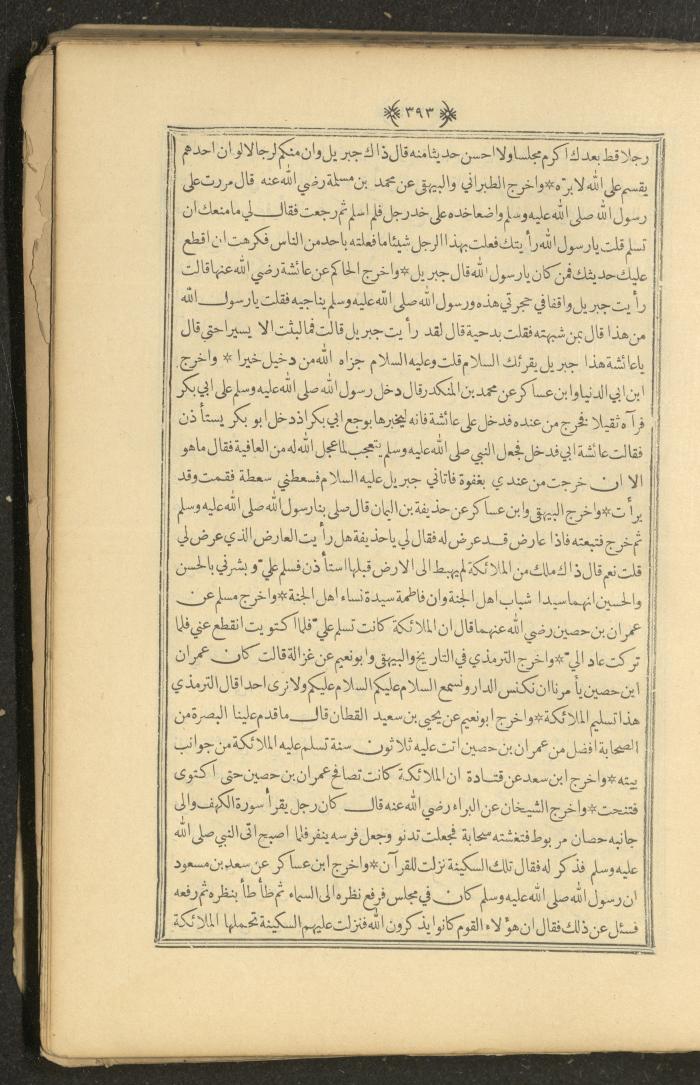 ٣٩٣
رجلا قط بعدك اكرم مجلسا ولا احسن حديثا منه قال ذاك جبريل وان منكم لرجالا لو ان احدهم
يقسم على الله لابره * واخرج الطبراني والبيهقي عن محمد بن مسلمة رضي الله عنه قال مررت على
رسول الله صلى الله عليه وسلم واضعا خده على خد رجل فلم اسلم ثم رجعت فقال لي ما منعك ان
تسلم قلت يا رسول الله رأيتك فعلت بهذا الرجل شيئا ما فعلته باحد من الناس فكرهت ان اقطع
عليك حديثك فمن كان يا رسول الله قال جبريل * واخرج الحاكم عن عائشة رضي الله عنها قالت
رأيت جبريل واقفا في حجرتي هذه ورسول الله صلى الله عليه وسلم يناجيه فقلت يا رسول الله
من هذا قال بمن شبهته فقلت بدحية قال لقد رأيت جبريل قالت فما لبثت الا يسيرا حتى قال
يا عائشة هذا جبريل يقرئك السلام قلت وعليه السلام جزاه الله من دخيل خيرا * واخرج
ابن ابي الدنيا وابن عساكر عن محمد بن المنكدر قال دخل رسول الله صلى الله عليه وسلم على ابي بكر
فرآه ثقيلا فخرج من عنده فدخل على عائشة فانه ليخبرها بوجع ابي بكر اذ دخل ابو بكر يستأذن
فقالت عائشة ابي فدخل فجعل النبي صلى الله عليه وسلم يتعجب لما عجل الله له من العافية فقال ما هو
الا ان خرجت من عندي بغفوة فاتاني جبريل عليه السلام فسعطني سعطة فقمت وقد
برأت * واخرج البيهقي وابن عساكر عن حذيفة بن اليمان قال صلى بنا رسول الله صلى الله عليه وسلم
ثم خرج فتبعته فاذا عارض قد عرض له فقال لي يا حذيفة هل رأيت العارض الذي عرض لي
قلت نعم قال ذاك ملك من الملائكة لم يهبط الى الارض قبلها استأذن فسلم علي وبشرني بالحسن
والحسين انهما سيدا شباب اهل الجنة وان فاطمة سيدة نساء اهل الجنة * واخرج مسلم عن
عمران بن حصين رضي الله عنهما قال ان الملائكة كانت تسلم علي فلما اكتويت انقطع عني فلما
تركت عاد الي * واخرج الترمذي في التاريخ والبيهقي وابو نعيم عن غزالة قالت كان عمران
ابن حصين يأمرنا ان نكنس الدار ونسمع السلام عليكم السلام عليكم ولا نرى احدا قال الترمذي
هذا تسليم الملائكة * واخرج ابو نعيم عن يحيى بن سعيد القطان قال ما قدم علينا البصرة من
الصحابة افضل من عمران بن حصين اتت عليه ثلاثون سنة تسلم عليه الملائكة من جوانب
بيته * واخرج ابن سعد عن قتادة ان الملائكة كانت تصافح عمران بن حصين حتى اكتوى
فتنحت * واخرج الشيخان عن البراء رضي الله عنه قال كان رجل يقرأ سورة الكهف والى
جانبه حصان مربوط فتغشته سحابة فجعلت تدنو وجعل فرسه ينفر فلما اصبح اتى النبي صلى الله
عليه وسلم فذكر له فقال تلك السكينة نزلت للقرآن * واخرج ابن عساكر عن سعد بن مسعود
ان رسول الله صلى الله عليه وسلم كان في مجلس فرفع نظره الى السماء ثم طأطأ بنظره ثم رفعه
فسئل عن ذلك فقال ان هؤلاء القوم كانوا يذكرون الله فنزلت عليهم السكينة تحملها الملائكة